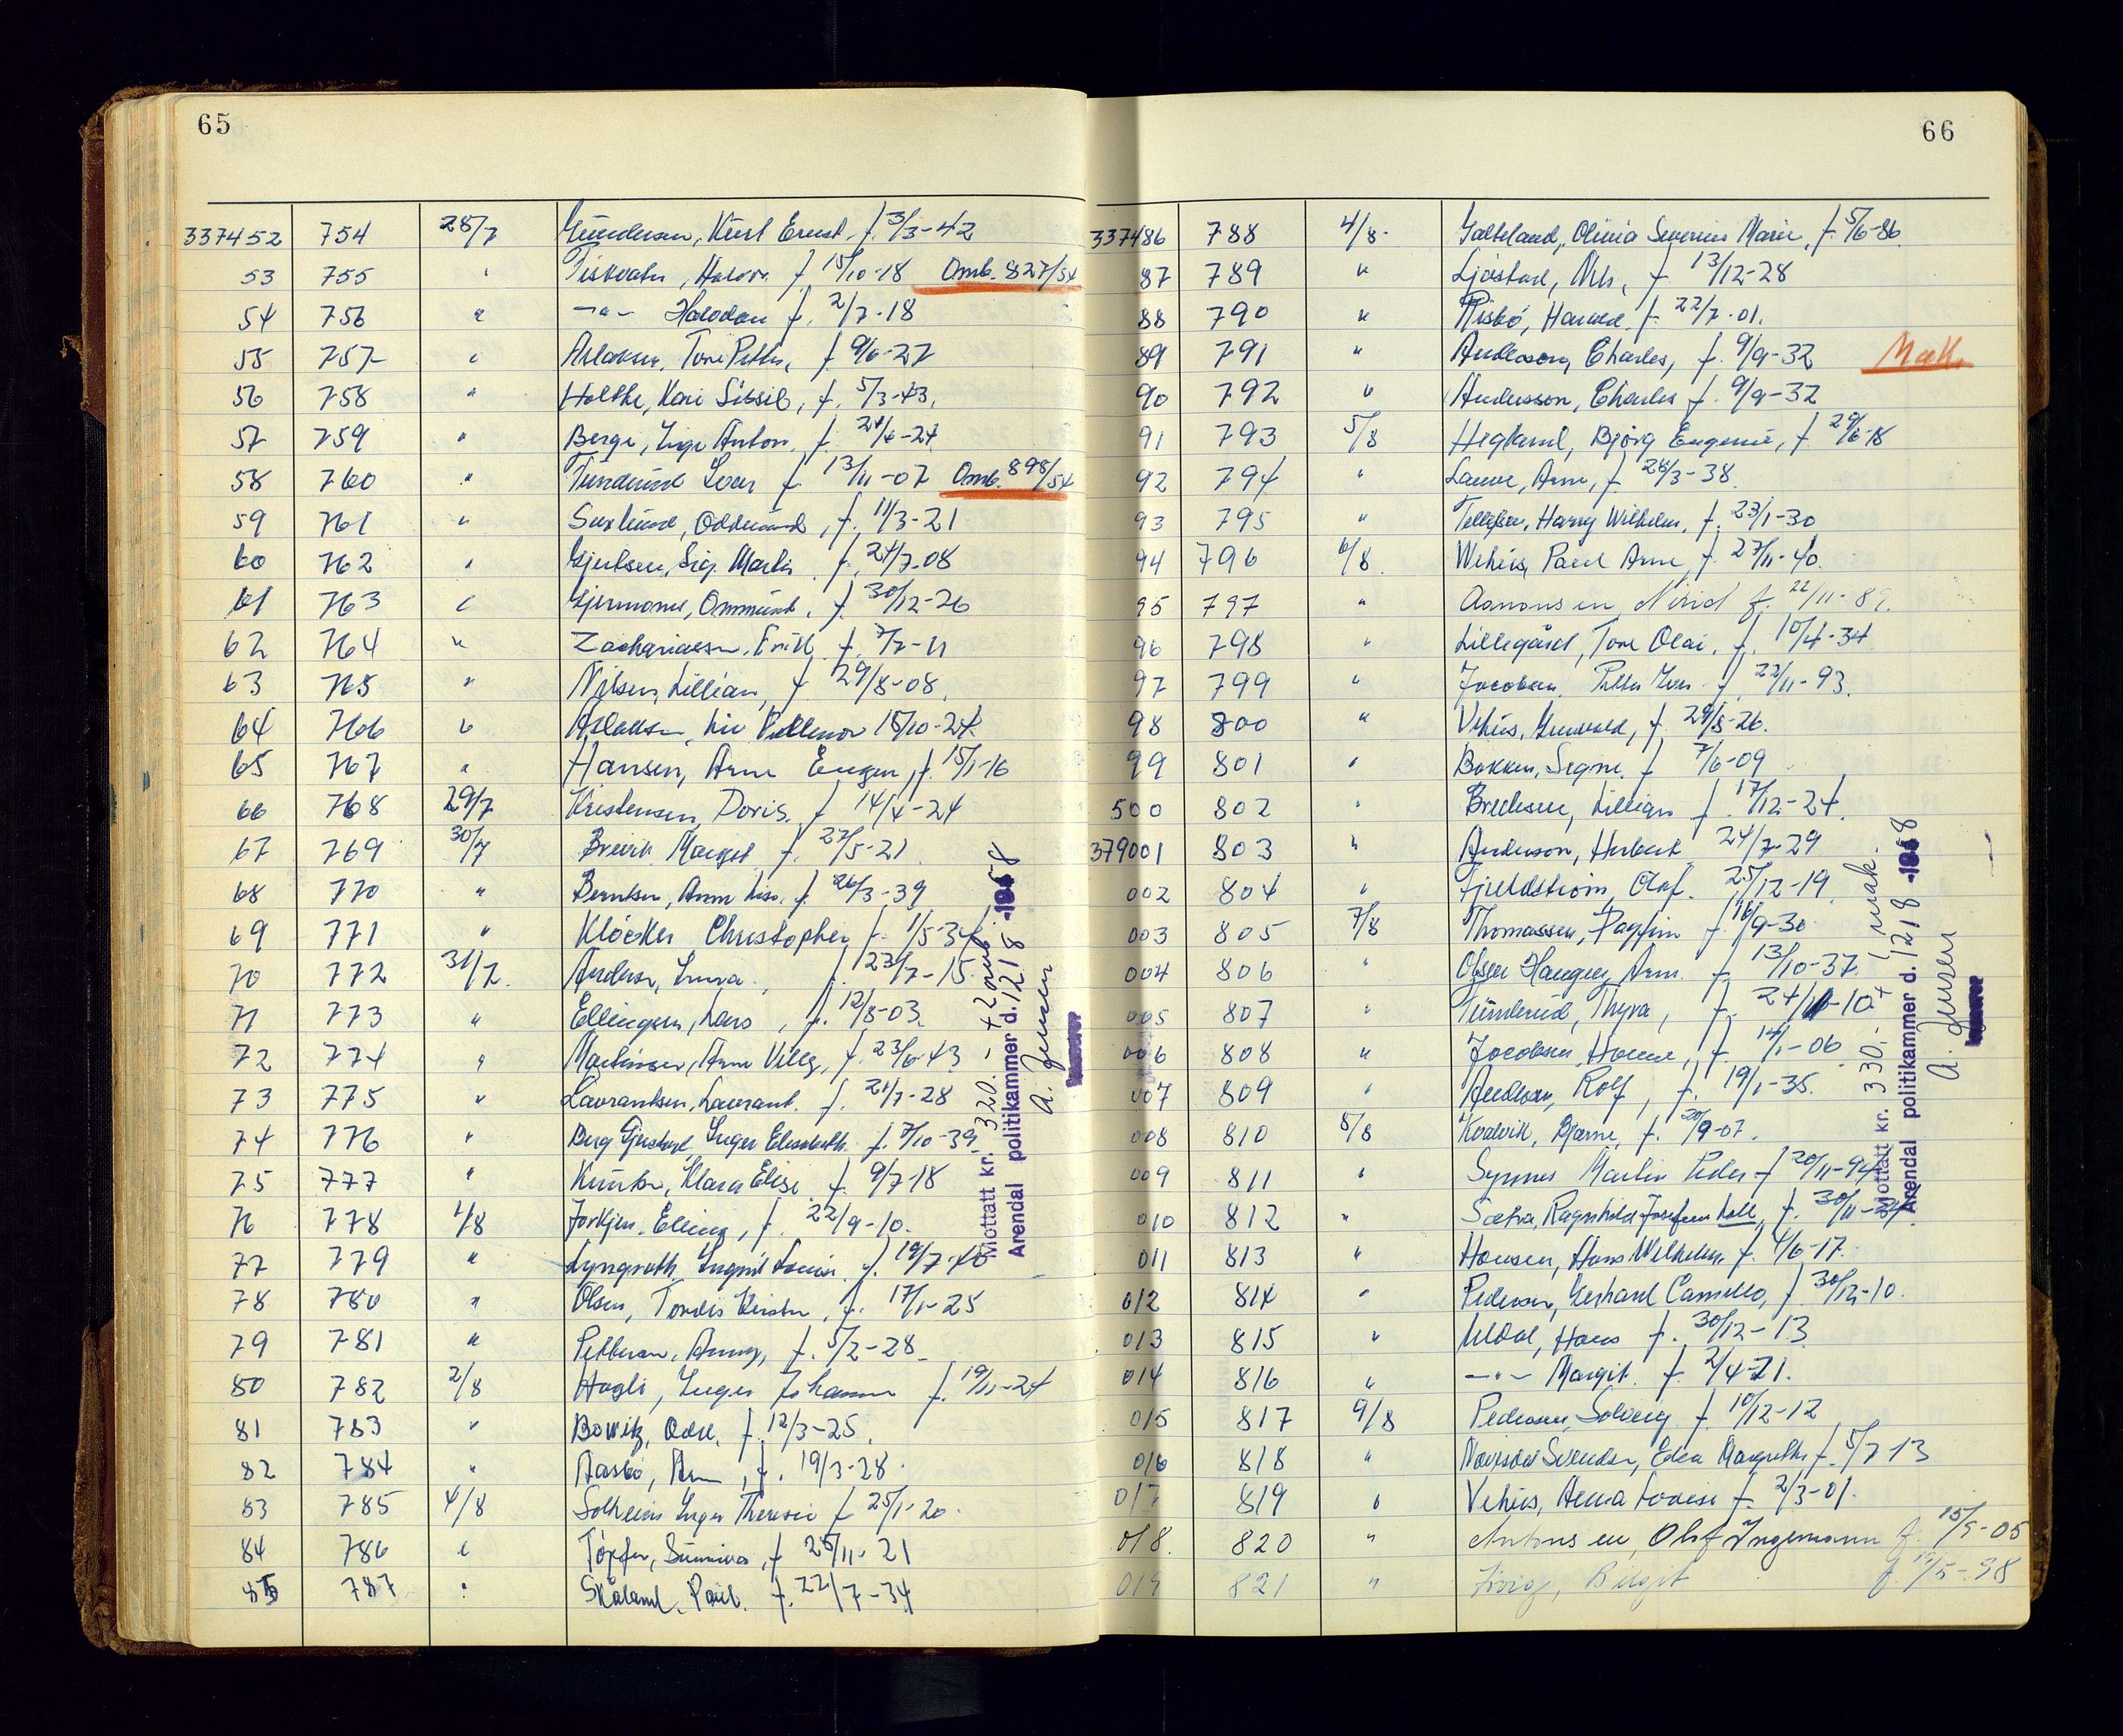 65
337452 754 28/7 Gundersen, Kurt Ernst f. 3/3-42
53 755 " f. 15/10-18 Omb. 827/54
54 756 " —"— Halvdan f. 2/7-18
55 757 " Aslaksen, Tore Petter, f. 9/6-27
56 758 " Holthe, Kari Sissil, f. 5/3-43.
57 759 " Berge, Inge Anton, f.
58 760 " Tunderud Ivar f 13/11-07 Omb. 898/54
59 761 " Oddmund, f. 11/3-21
60 762 " Sig. Martin f. 24/7-08
61 763 " Ommund, f. 30/12-26
62 764 " Zachariasen, f. 7/7-11
63 765 " Nilsen, Lillian, f 29/8-08.
64 766 " Aslaksen, Liv 15/10-24.
65 767 " Hansen, Arne Eugen, f. 15/1-16
66 768 29/7 Kristensen, Doris. f 14/4-24
67 769 30/7 Brevik Margit f. 27/5-21
68 770 " Berntsen, Anne Lise. f. 26/3-39
69 771 " Klöcker Christopher f. 1/5-34
70 772 31/7. 23/7-15.
71 773 " Ellingsen, Lars, f. 12/8-03.
72 774 " Martinsen, Arne Villy, f. 23/6-43
73 775 " Lavrantsen, Lavrant. f. 21/7-28
74 776 " Berg Inger Elisabeth f. 7/10-39.
75 777 " Klara Elise f. 9/7-18
76 778 1/8 Elling, f. 22/9-10.
77 779 " Ingrid Louise f. 19/7-40
78 780 " Olsen, Tordis Kirsten, f. 17/1-25
79 781 " Pettersen, Anny, f. 5/2-28
80 782 2/8 Hagli, Inger Johanne f. 19/11-24
81 783 " Bowitz, Odd, f. 12/3-25.
82 784 " Aasbö, f. 19/3-28.
83 785 4/8 Solheim Inger Therese f 25/1-20.
84 786 " Töpfer, Sunniva, f 25/11-21
85 787 " Skåland, Paul. f. 22/7-34
Mottatt kr. 320.- + 2 omb.
Arendal politikammer d. 12/8-1958
A. Jensen
66
337486 788 4/8- Galteland, Olivia Severine Marie, f. 5/6-86.
87 789 " Ljöstad, Nils, f. 13/12-28
88 790 " Risbö, Harald f. 22/7-01.
89 791 " Andersson, Charles, f. 9/9-32 Mak.
90 792 " Andersson, Charles f. 9/9-32
91 793 5/8 Hegland, Björg Eugenie, f. 29/6-18
92 794 " Lauve, Arne, f. 26/3-38.
93 795 " Tellefsen, Harry Wilhelm, f. 23/1-30
94 796 6/8. Vehus, Paul Arne f. 27/11-40.
95 797 " f. 22/11-89.
96 798 " Lillegård, Tore Olai, f. 10/4-34
97 799 " Jacobsen, f. 22/11-93.
98 800 " Vehus, f. 29/8-26.
99 801 " Bakken, Signe, f 7/6-09
500 802 " Bredesen, Lillian f. 17/12-24.
379001 803 " Anderson, Herbert 24/7-29
002 804 " Fjeldström, Olaf. 25/12-19.
003 805 7/8 Thomassen, Dagfinn f. 16/9-30
004 806 " Olsen Haugen, Arne. f. 13/10-37.
005 807 " Tunderud, Thyra, f.
006 808 " Jacobsen, f. 14/1-06
007 809 " Andersen, Rolf, f. 19/1-35.
008 810 8/8 Bjarne, f. 30/9-07.
009 811 " Synnes Martin Peder f 20/11-94
010 812 " Sætra, Ragnhild Josefine f. 30/11-
011 813 " Hansen, Hans Wilhelm, f. 4/6-17.
012 814 " Pedersen, Gerhard Camillo, f. 30/12-10.
013 815 " Uldal, Hans f. 30/12-13
014 816 " —"— Margit. f. 2/4-21.
015 817 9/8 Pedersen, Solveig f 10/12-12
016 818 " Edea Margrethe f. 5/7 13
017 819 " Vehus, Anna Lovise f. 2/3-01.
018. 820 " Antonsen, Olaf Ingemann f. 15/9-05
019 821 " Birgit f.
Mottatt kr. 330.- + 1 mak.
Arendal politikammer d. 12/8-1958
A. Jensen